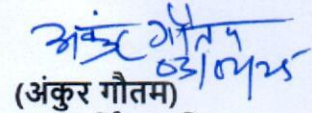 अंकुर गौतम
03/04/25
(अंकुर गौतम)